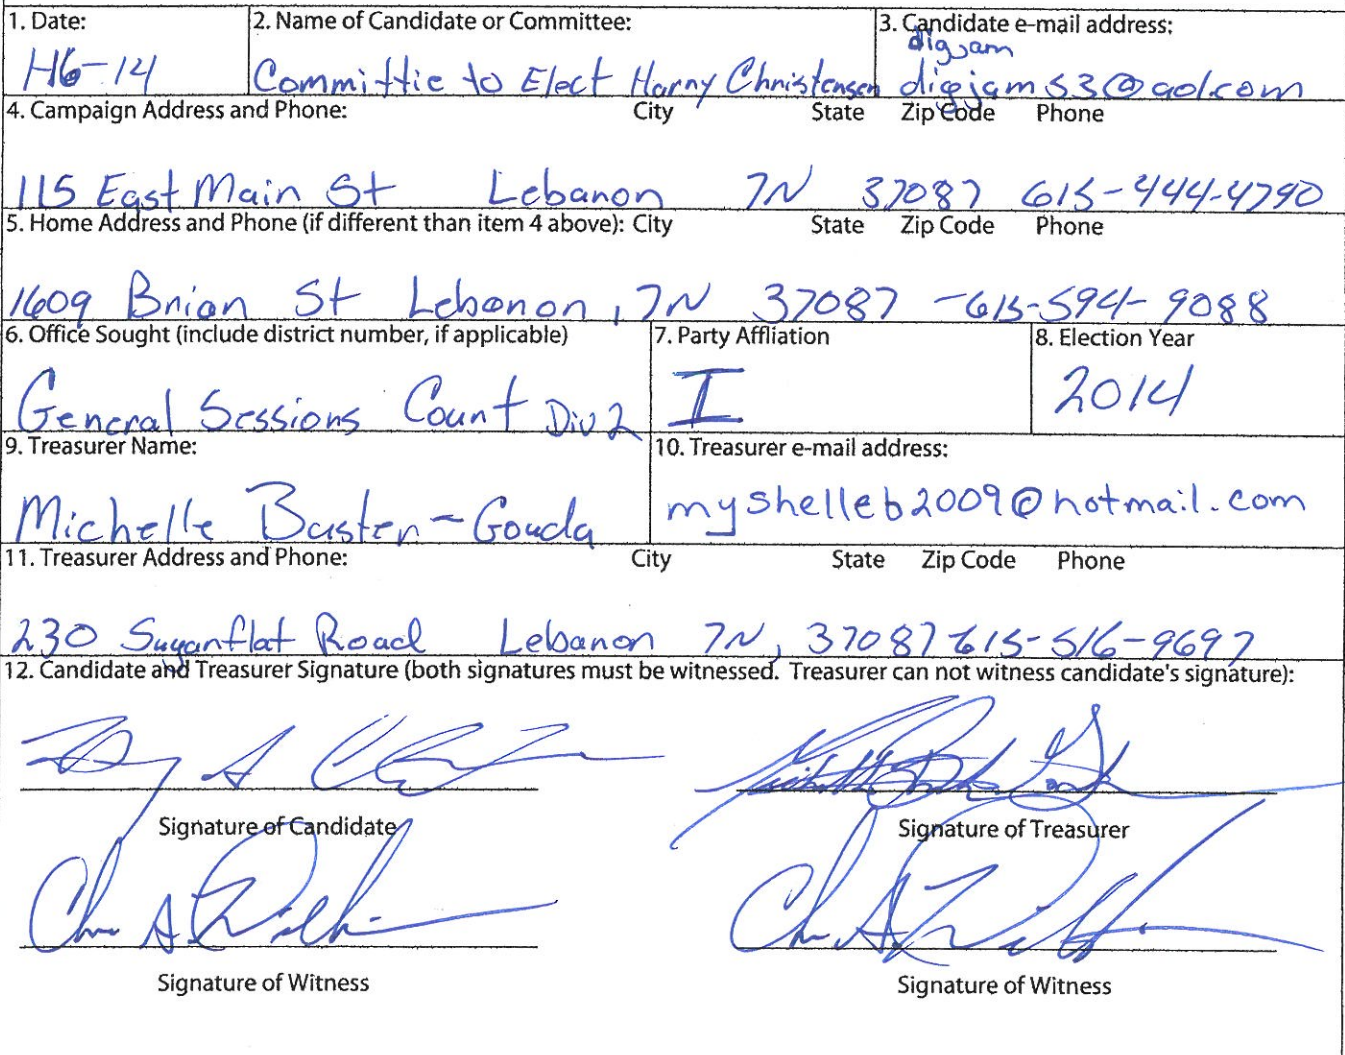 1. Date: 2. Name of Candidate or Committee: 3. Candidate e-mail address:
digjam
H6-14 Committie to Elect Harry Christensen digjams3@aol.com
4. Campaign Address and Phone: City State Zip Code Phone
115 East Main St Lebanon TN 37087 615-444-4790
5. Home Address and Phone (if different than item 4 above): City State Zip Code Phone
1609 Brian St Lebanon, TN 37087 -615-594-9088
6. Office Sought (include district number, if applicable) 7. Party Affliation 8. Election Year
General Sessions Court Div 2 I 2014
9. Treasurer Name: 10. Treasurer e-mail address:
Michelle Baster-Gouda myshelleb2009@hotmail.com
11. Treasurer Address and Phone: City State Zip Code Phone
230 Sugarflat Road Lebanon TN, 37087 615-516-9697
12. Candidate and Treasurer Signature (both signatures must be witnessed. Treasurer can not witness candidate's signature):
Signature of Candidate Signature of Treasurer
Signature of Witness Signature of Witness